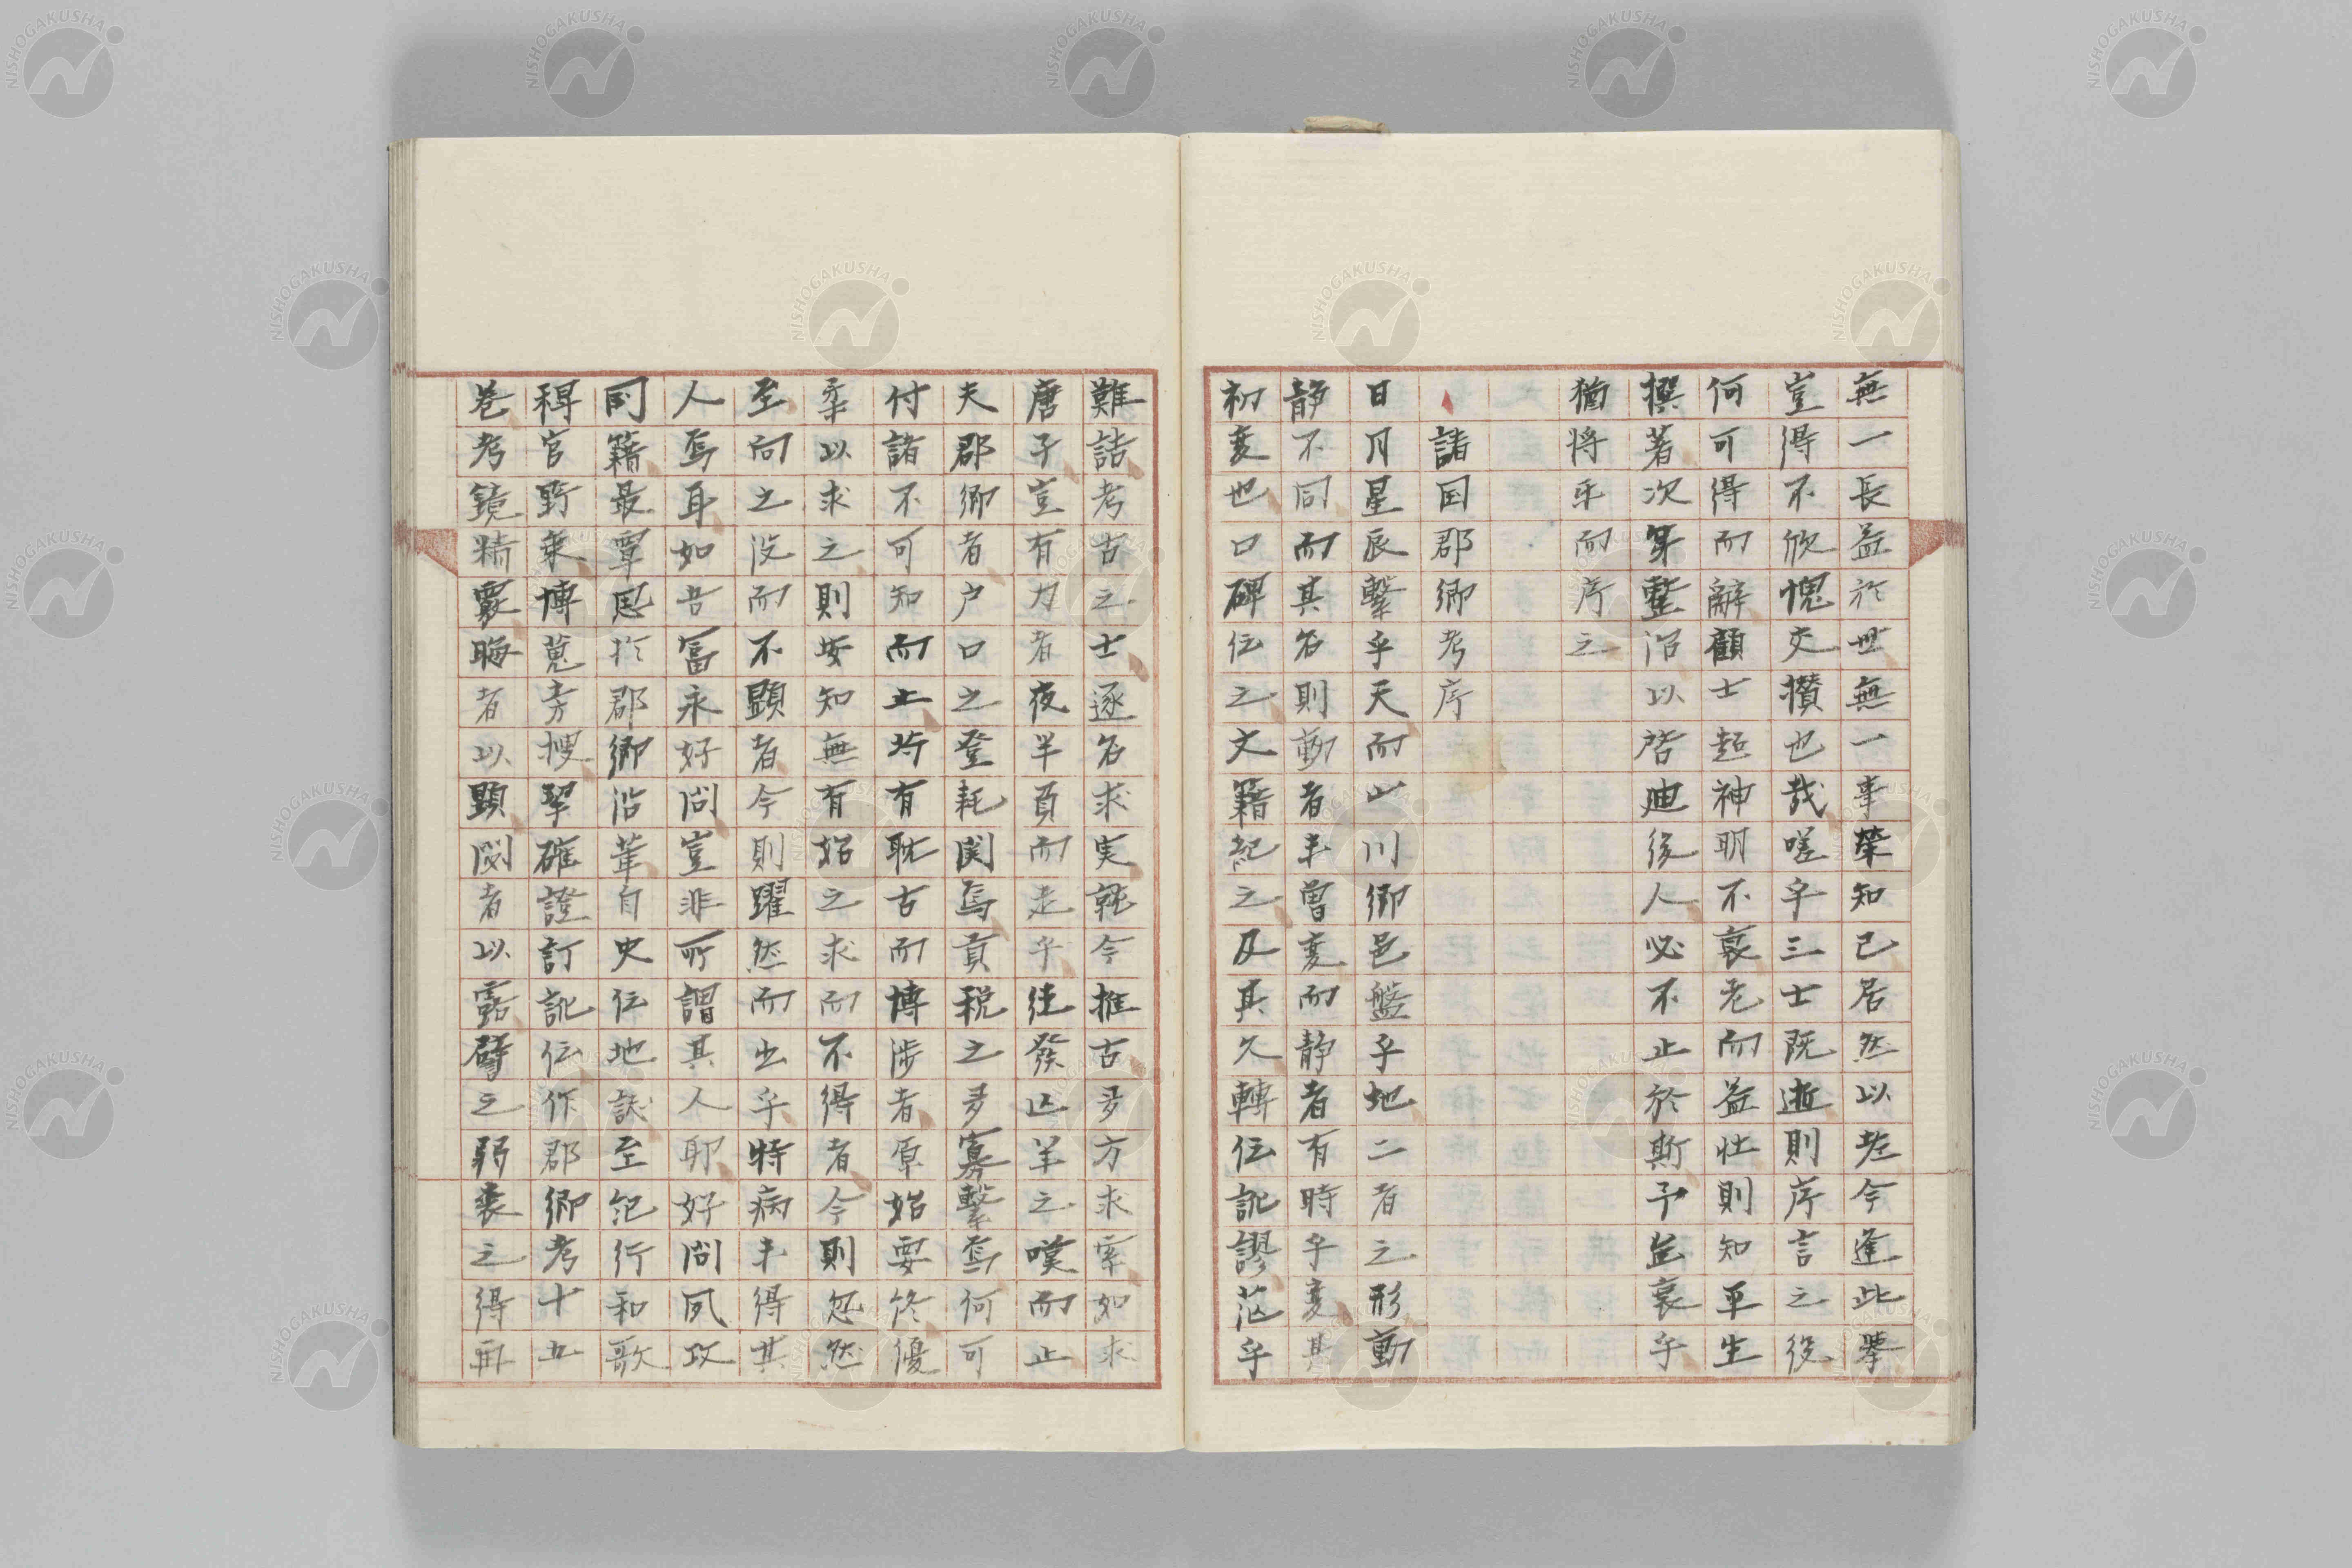 無一長益於世無一事榮知己居然以老今逢此擧
豈得不欣愧交攅也哉嗟乎三士既逝則序言之役
何可得而辭顧士超神明不衰老而益壮則知平生
撰著次第整沼以啓迪後人必不止於斯予益衰乎
猶将乎而序之
諸国郡郷考序
日月星辰繋乎天而山川郷邑盤乎地二者之形動
静不同而其名則動者未曽変而静者有時乎変其
初変也口碑伝之文籍紀之及其久轉伝訛謬茫乎
難詰考古之士逐名求実就今推古多方求索如求
唐子豈有力者夜半負而走乎徒發亡羊之嘆而止
夫郡郷者户口之登耗関焉貢税之多寡繋焉何可
付諸不可知而止片有耽古而博渉者原始要終優
柔以求之則安知無有始之求而不得者今則忽然
至向之没而不顕者今則躍然而出乎特病未得其
人焉耳如吾冨永好問豈非所謂其人耶好問夙攻
国籍最覃思於郡郷沿革自史伝地誌至紀行和歌
稗官野乗博蒐旁捜挈確證訂訛伝作郡郷考十五
巻考鏡精覈晦者以顕闕者以露譬之弱喪之得再